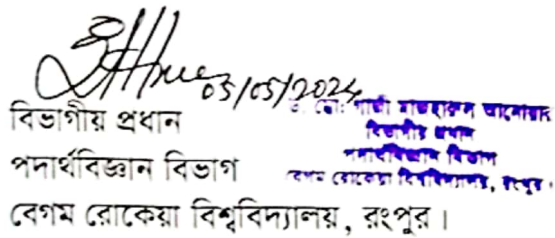 03/05/2024
বিভাগীয় প্রধান
পদার্থবিজ্ঞান বিভাগ
বেগম রোকেয়া বিশ্ববিদ্যালয়, রংপুর।
ড. মো: গাজী মাজহারুল আনোয়ার
বিভাগীয় প্রধান
পদার্থবিজ্ঞান বিভাগ
বেগম রোকেয়া বিশ্ববিদ্যালয়, রংপুর।